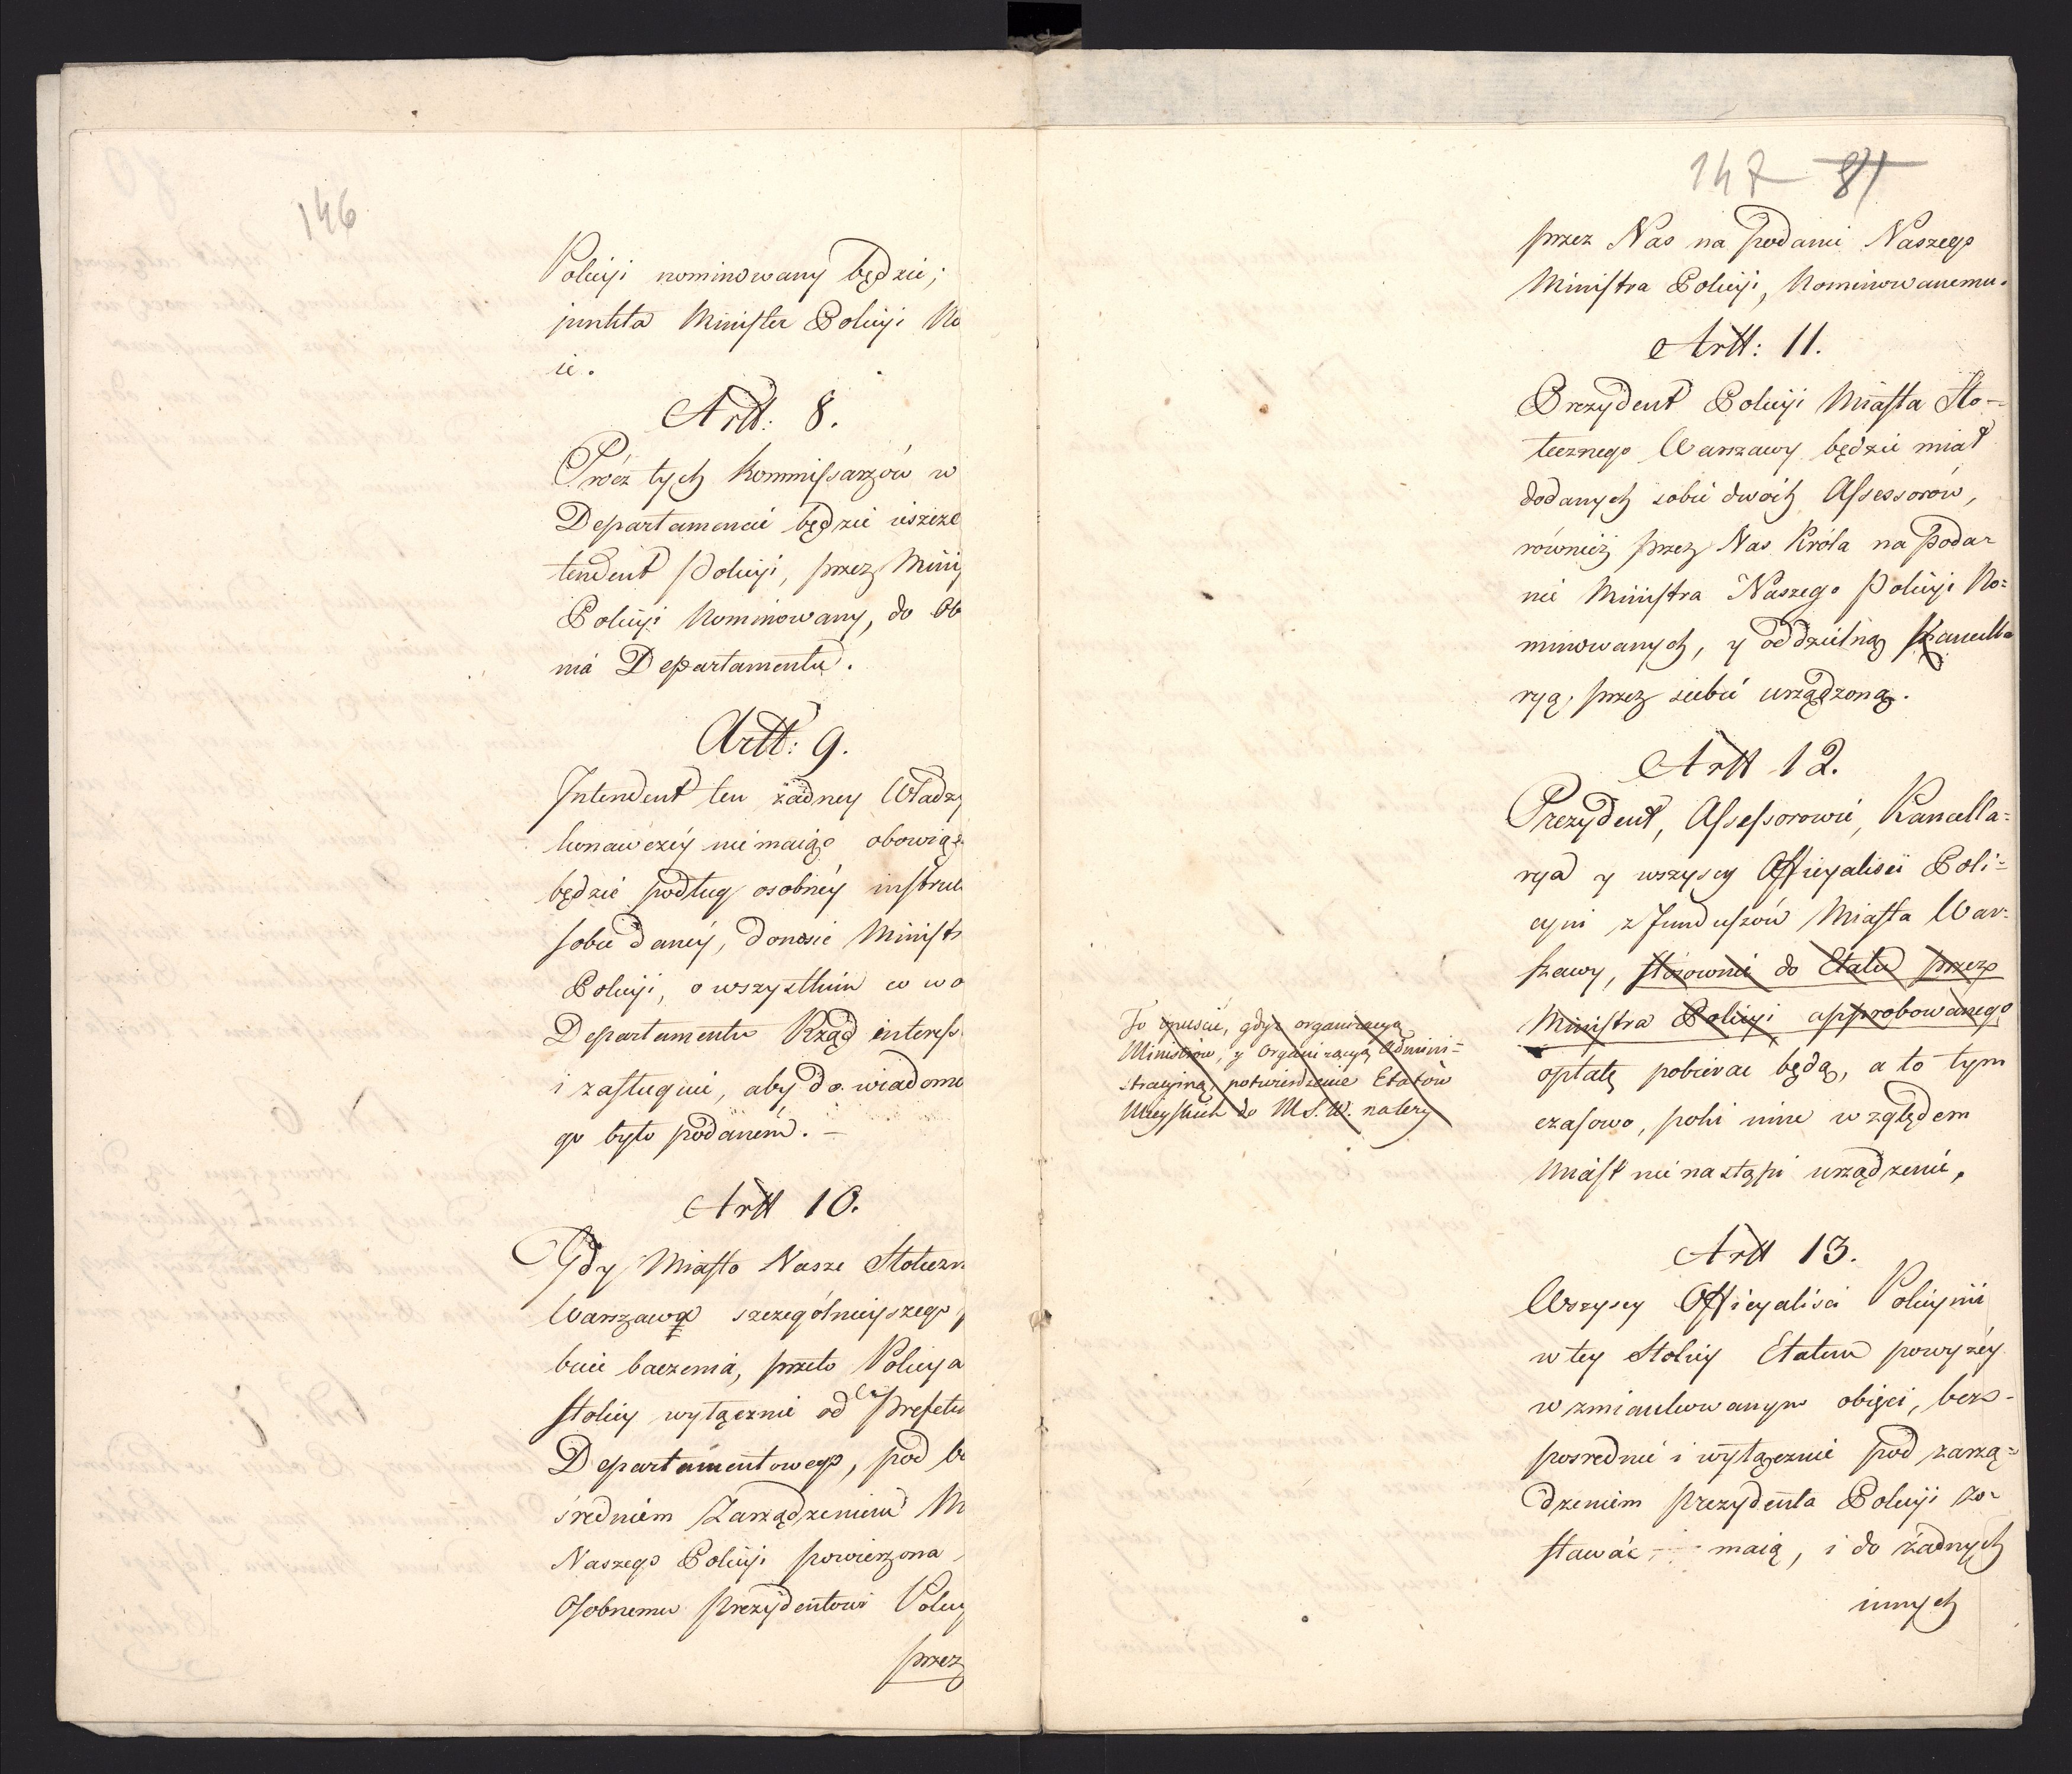 146
Policyi nominowany będzie;
junkta Minister Policyi No
ie.
Artt: 8.
Prócz tych Kommissarzów w
Departamencie będzie ieszcze
tendent Policyi, przez Mini
Policyi Nominowany, do Ob
nia Departamentu.
Artt: 9.
Intendent ten żadney Władzy
konawczéy nie maiąc obowiąz
będzie podług osobnéy instruk
sobie danéy, donosić Ministr
Policyi, o wszystkim co w o
Departamentu Rząd interess
i zasługuie, aby do wiadomo
go było podaném. –
Artt 10.
Gdy Miasto Nasze Stołeczn
Warszawa szczególnieyszego
buie baczenia, przeto Policya
stolicy wyłącznie od Prefektu
Departamentowego, pod be
średniem Zarządzeniem M
Naszego Policyi powierzona
Osobnemu Prezydentowi Policy
przez
147 81
przez Nas na Podanie Naszego
Ministra Policyi, Nominowanemu.
Artt: 11.
Prezydent Policyi Miasta Sto-
łecznego Warszawy będzie miał
dodanych sobie dwóch Assessorów,
również przez Nas Króla na Poda-
nie Ministra Naszego Policyi No=
minowanych, y oddzielną Kancella
ryą, przez siebie urządzoną.
Artt 12.
Prezydent, Assessorowie, Kancella=
rya y wszyscy Officyalisci Poli=
cyni z Funduszów Miasta War=
szawy, stosownie do Etatu przez
Ministra Policyi approbowanego
opłatę pobierać będą, a to tym
czasowo, poki inne względem
Miast nie nastąpi urządzenie,
To opuścić, gdyż organizacyą
Ministrów, y Organizacyą Admini=
stracyiną, potwierdzenie Etatów
Mieyskich do M S. W. należy
Artt 13.
Wszyscy Officyalisci Policyini
w tey Stolicy Etatem powyżéy
wzmiankowanym obięci, bez-
posrednie i wyłącznie pod zarzą=
dzeniem Prezydenta Policyi zo-
stawać maią, i do żadnych
innych